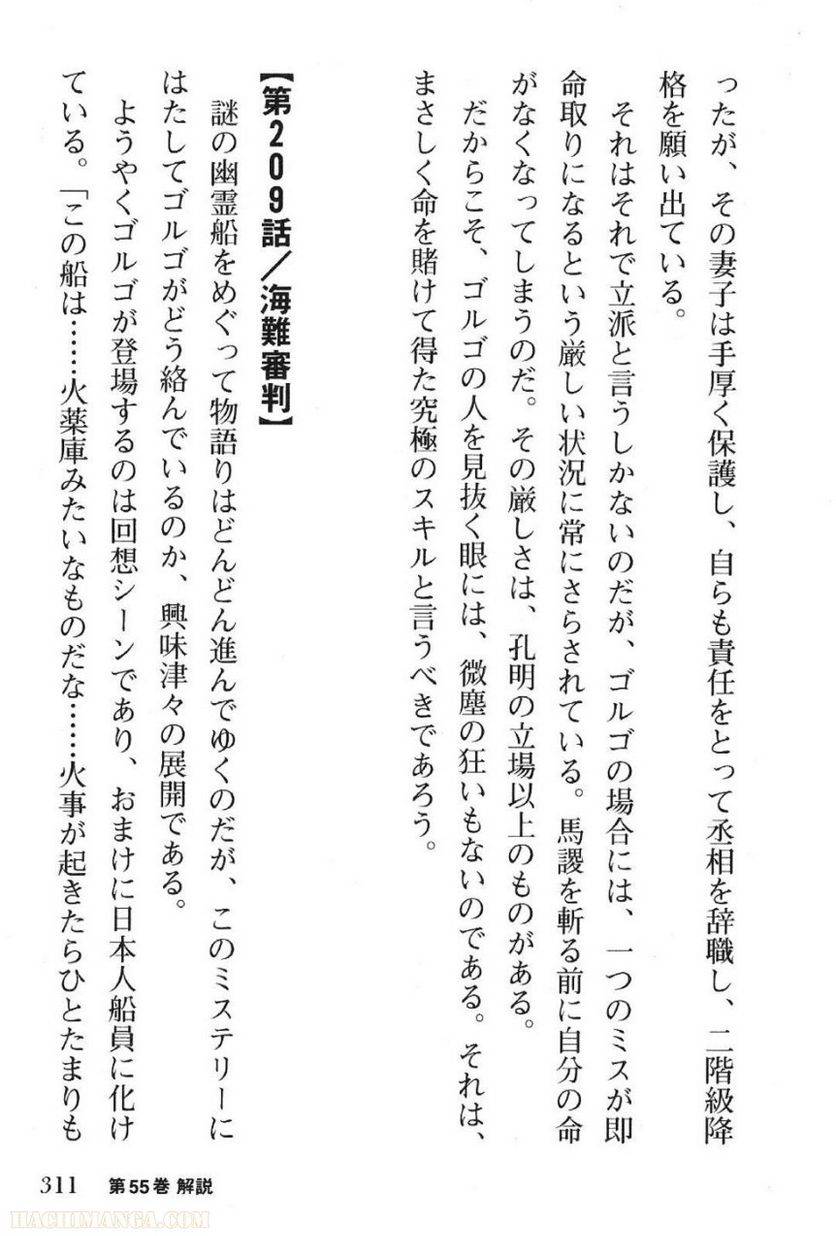 ったが、その妻子は手厚く保護し、自らも責任をとって丞相を辞職し、二階級降
格を願い出ている。
それはそれで立派と言うしかないのだが、ゴルゴの場合には、一つのミスが即
命取りになるという厳しい状況に常にさらされている。馬謖を斬る前に自分の命
がなくなってしまうのだ。その厳しさは、孔明の立場以上のものがある。
だからこそ、ゴルゴの人を見抜く眼には、微塵の狂いもないのである。それは、
まさしく命を賭けて得た究極のスキルと言うべきであろう。
【第209話／海難審判】
謎の幽霊船をめぐって物語りはどんどん進んでゆくのだが、このミステリーに
はたしてゴルゴがどう絡んでいるのか、興味津々の展開である。
ようやくゴルゴが登場するのは回想シーンであり、おまけに日本人船員に化け
ている。「この船は……火薬庫みたいなものだな……火事が起きたらひとたまりも
311 第55巻 解説
HACHIMANGA.COM